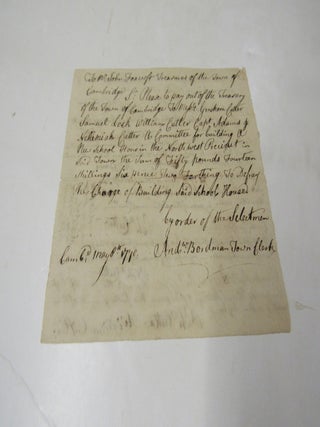 To Mr John Foxcroft Treasurer of the Town of
Cambridge Sr. Please to pay out of the Treasury
of the Town of Cambridge To Messrs. Gersham Cutter
Samuel Cook William Cutler Capt. Adams &
Nehemiah Cutter A Committee for building a
New School House in the Northwest Precinct in
Said Town the Sum of Fifty pounds Fourteen
Shillings Six pence two Farthing To Defray
the Charge of Building Said School House
by order of the Selectmen
Camb. May 1770 Andw. Bordman Town Clerk